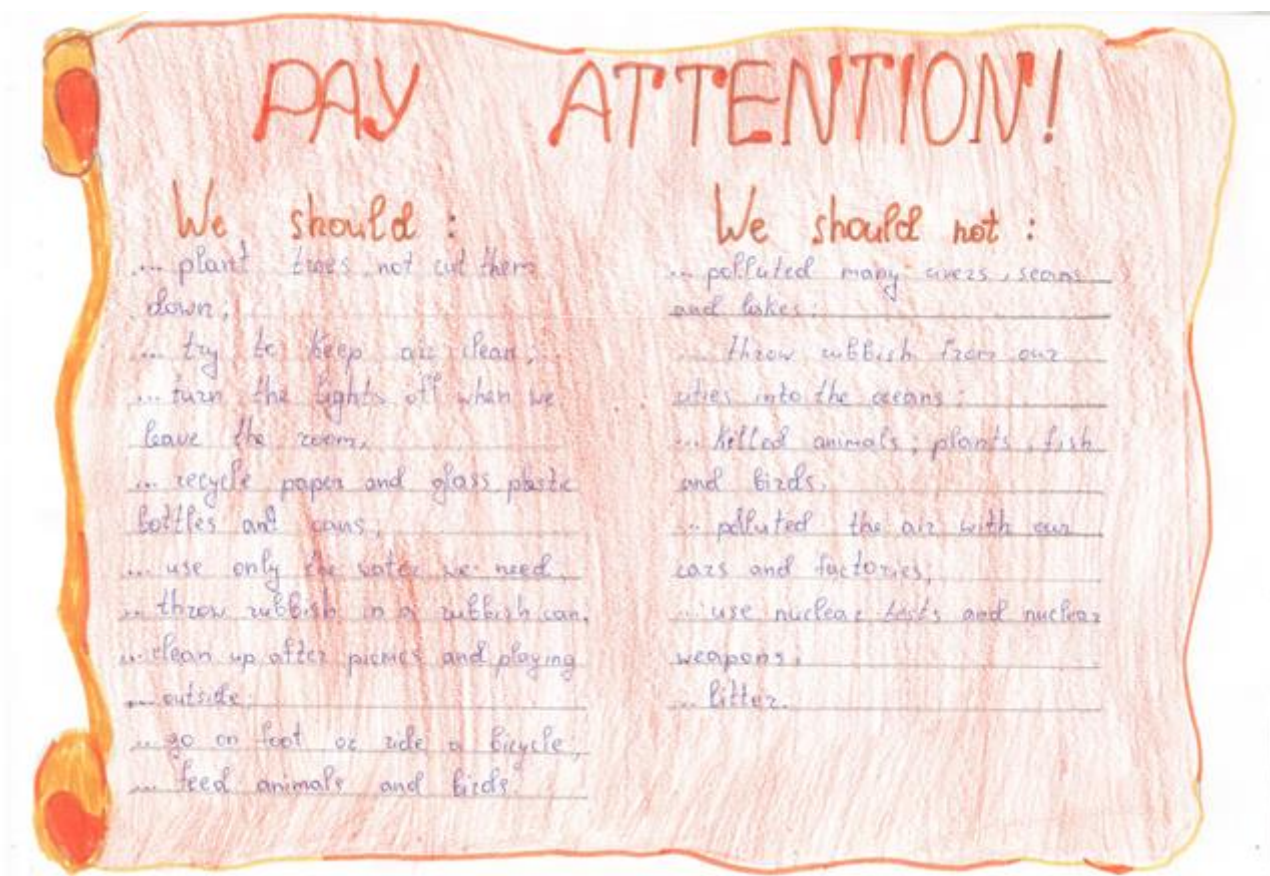 PAY ATTENTION!
We should :
... plant trees not cut them
down;
... try to keep air clean;
... turn the lights off when we
leave the room,
... recycle paper and glass plastic
bottles ant cans;
... use only the water we need,
... throw rubbish in a rubbish can,
... clean up after picnics and playing
... outside;
... go on foot or ride a bicycle;
... feed animals and birds.
We should not :
... polluted many rivers, seans
and lakes;
... throw rubbish from our
cities into the oceans;
... killed animals; plants, fish
and birds;
... polluted the air with our
cars and factories;
... use nuclear tests and nuclear
weapons;
... litter.